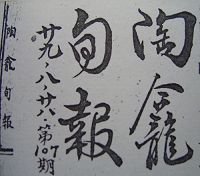 陶龕
旬報
廿九·八·廿八·第107期
陶龕旬報